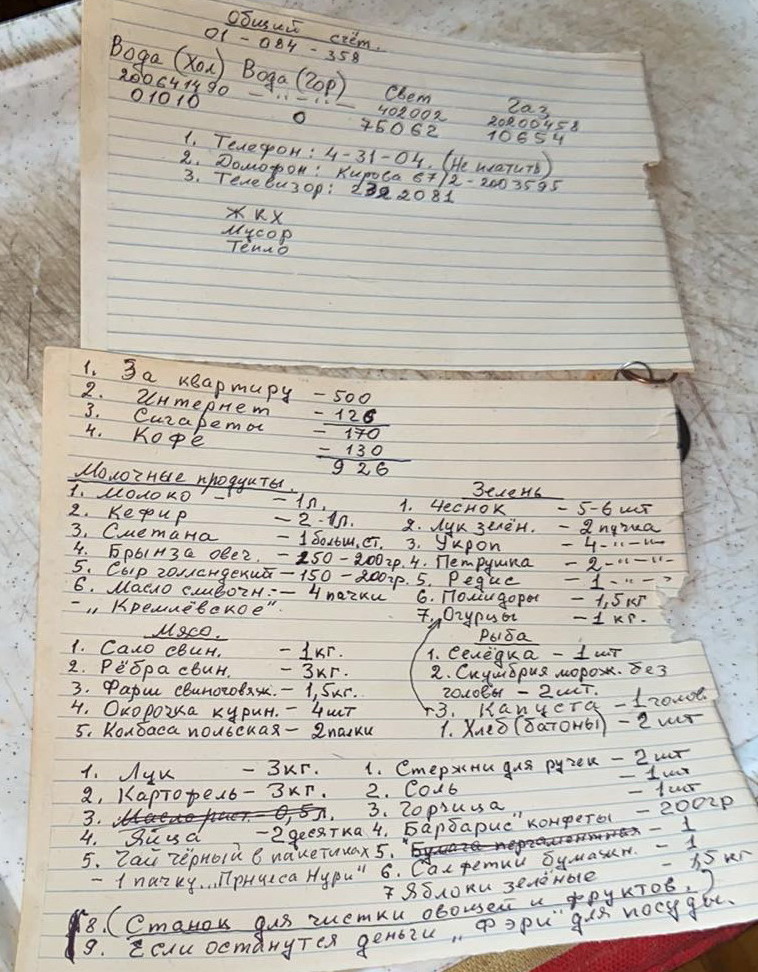 Общий счёт.
01 - 084 - 358
Вода (Хол) Вода (Гор) Свет Газ
200641490 - " - " - 402002 20200458
01010 0 75062 10654
1. Телефон: 4-31-04. (Не платить)
2. Домофон: Кирова 67/2 - 2003595
3. Телевизор: 2322081
ЖКХ
Мусор
Тепло
1. За квартиру - 500
2. Интернет - 126
3. Сигареты - 170
4. Кофе - 130
926
Молочные продукты.
1. Молоко - - 1л.
2. Кефир - 2-1л.
3. Сметана - 1 больш. ст.
4. Брынза овеч. - 250 - 200гр.
5. Сыр голландский - 150 - 200гр.
6. Масло сливочн. - 4 пачки
- „Кремлёвское".
Зелень
1. Чеснок - 5-6 шт
2. Лук зелён. - 2 пучка
3. Укроп - 4 - " - " -
4. Петрушка - 2 - " - " -
5. Редис - 1 - " - "
6. Помидоры - 1,5 кг
7. Огурцы - 1 кг.
Мясо.
1. Сало свин. - 1 кг.
2. Рёбра свин. - 3кг.
3. Фарш свиноговяж. - 1,5кг.
4. Окорочка курин. - 4шт
5. Колбаса польская - 2 палки
Рыба
1. Селёдка - 1 шт
2. Скумбрия морож. без
головы - 2 шт.
3. Капуста - 1 голов.
1. Хлеб (батоны) - 2 шт
1. Лук - 3кг.
2. Картофель - 3кг.
3. Масло раст. - 0,5л.
4. Яйца - 2 десятка
5. Чай чёрный в пакетиках
- 1 пачку „Принцеса Нури"
1. Стержни для ручек - 2 шт
2. Соль - 1 шт
3. Горчица - 1 шт
4. Барбарис" конфеты - 200гр
5. "Бумага пергаментная - 1
6. Салфетки бумажн. - 1
7 Яблоки зелёные - 1,5 кг
8. (Станок для чистки овощей и фруктов.)
9. Если останутся деньги „Фэри" для посуды.